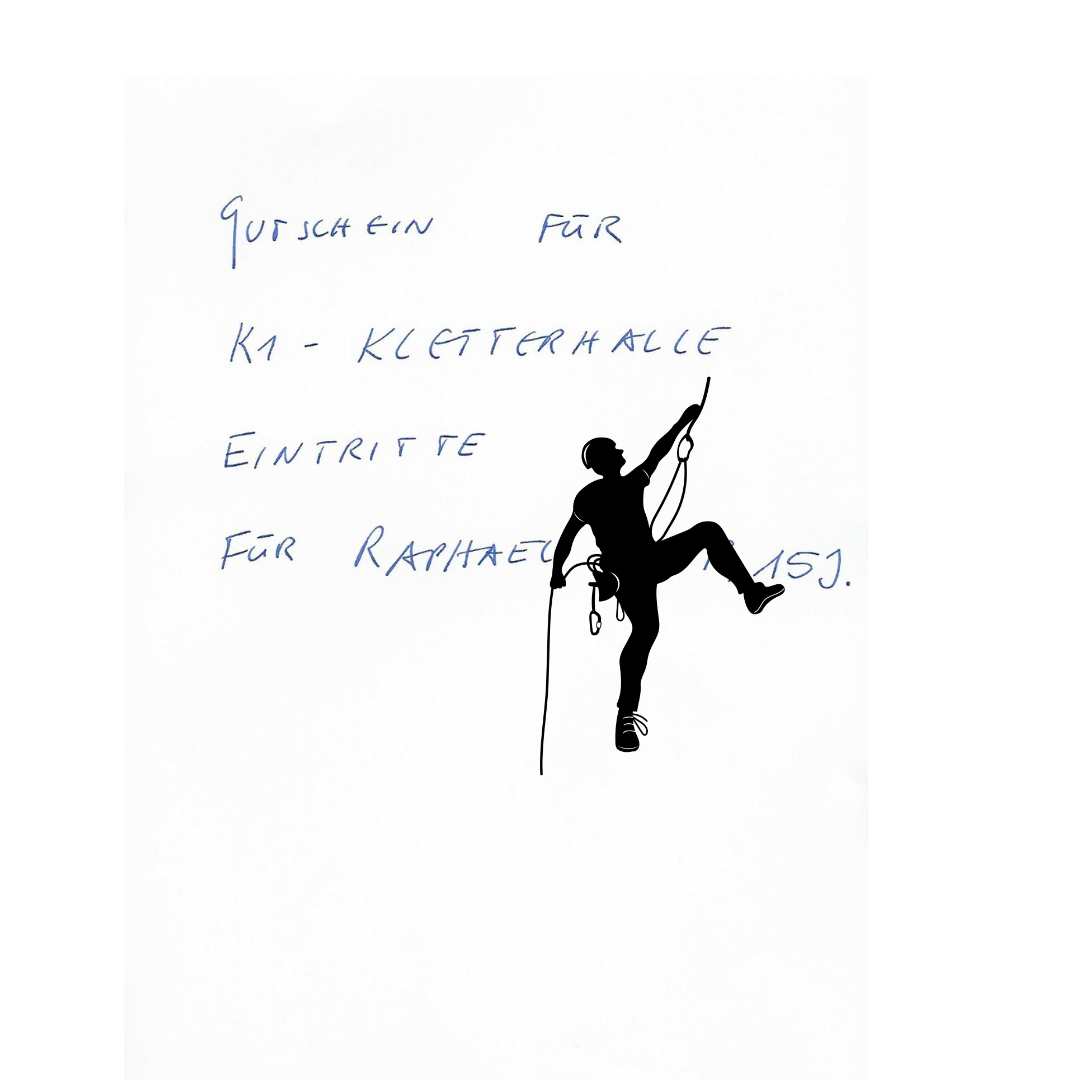 GUTSCHEIN FÜR
K1 - KLETTERHALLE
EINTRITTE
FÜR RAPHAEL 15J.